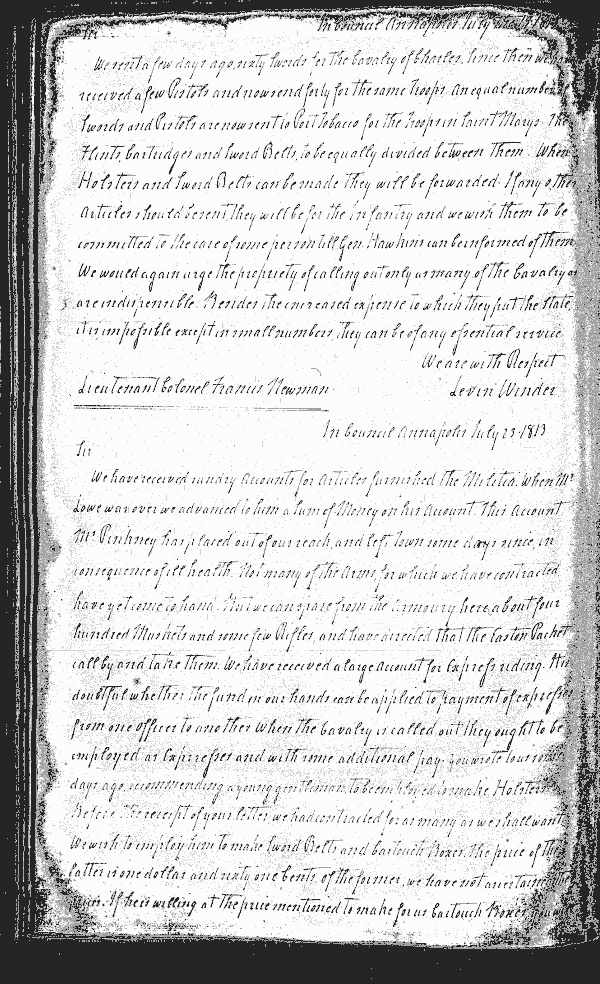 In Council Annapolis July
Sir
We sent a few days ago, sixty Swords for the Cavalry of Charles. Since then we
received a few Pistols and now send forty for the same Troops. An equal number of
Swords and Pistols are now sent to Port Tobacco for the Troops in Saint Marys. The
Flints, Cartridges and Sword Belts, to be equally divided between them. When
Holsters and Sword Belts can be made they will be forwarded. If any other
Articles should be sent they will be for the Infantry and we wish them to be
committed to the care of some person till Gen. Hawkins can be informed of them
We would again urge the propriety of calling out only as many of the Cavalry as
are indispensible. Besides the increased expense to which they put the State,
it is impossible except in small numbers, they can be of any essential service
We are with Respect
Lieutenant Colonel Francis Newman Levin Winder
In Council Annapolis July 23 1813
Sir
We have received sundry Accounts for Articles furnished the Militia. When Mr
Lowe was over we advanced to him a Sum of Money on his Account. This Account
Mr Pinkney has placed out of our reach, and left Town some days since, in
consequence of ill health. Not many of the Arms, for which we have contracted
have yet come to hand. But we can spare from the Armoury here, about four
hundred Muskets and some few Rifles, and have directed that the Easton Packet
call by and take them. We have received a large Account for Express riding. It is
doubtful whether the fund in our hands can be applied to payment of expresses
from one officer to another. When the Cavalry is called out they ought to be
employed as Expresses and with some additional pay. You wrote to us some
days ago, recommending a young gentleman, to be employed to make Holsters
Before the receipt of your letter, we had contracted for as many as we shall want
We wish to employ him to make Sword Belts and Cartouch Boxes, the price of the
latter is one dollar and sixty one Cents, of the former, we have not ascertained the
price. If he is willing at the price mentioned to make for us Cartouch Boxes